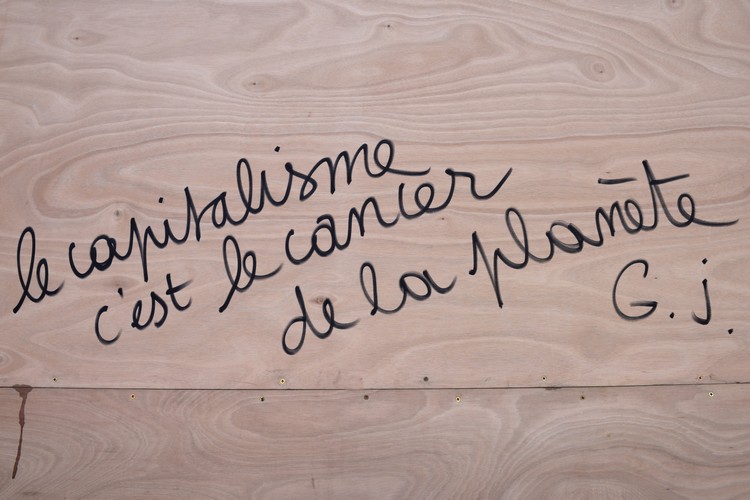 le capitalisme
c'est le cancer
de la planète
G. j.